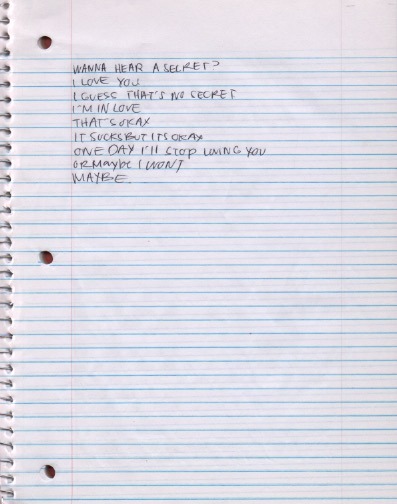 WANNA HEAR A SECRET?
I LOVE YOU
I GUESS THAT'S NO SECRET
I'M IN LOVE
THAT'S OKAY
IT SUCKS BUT IT'S OKAY
ONE DAY I'll STOP LOVING YOU
OR MAYBE I WON'T
MAYBE